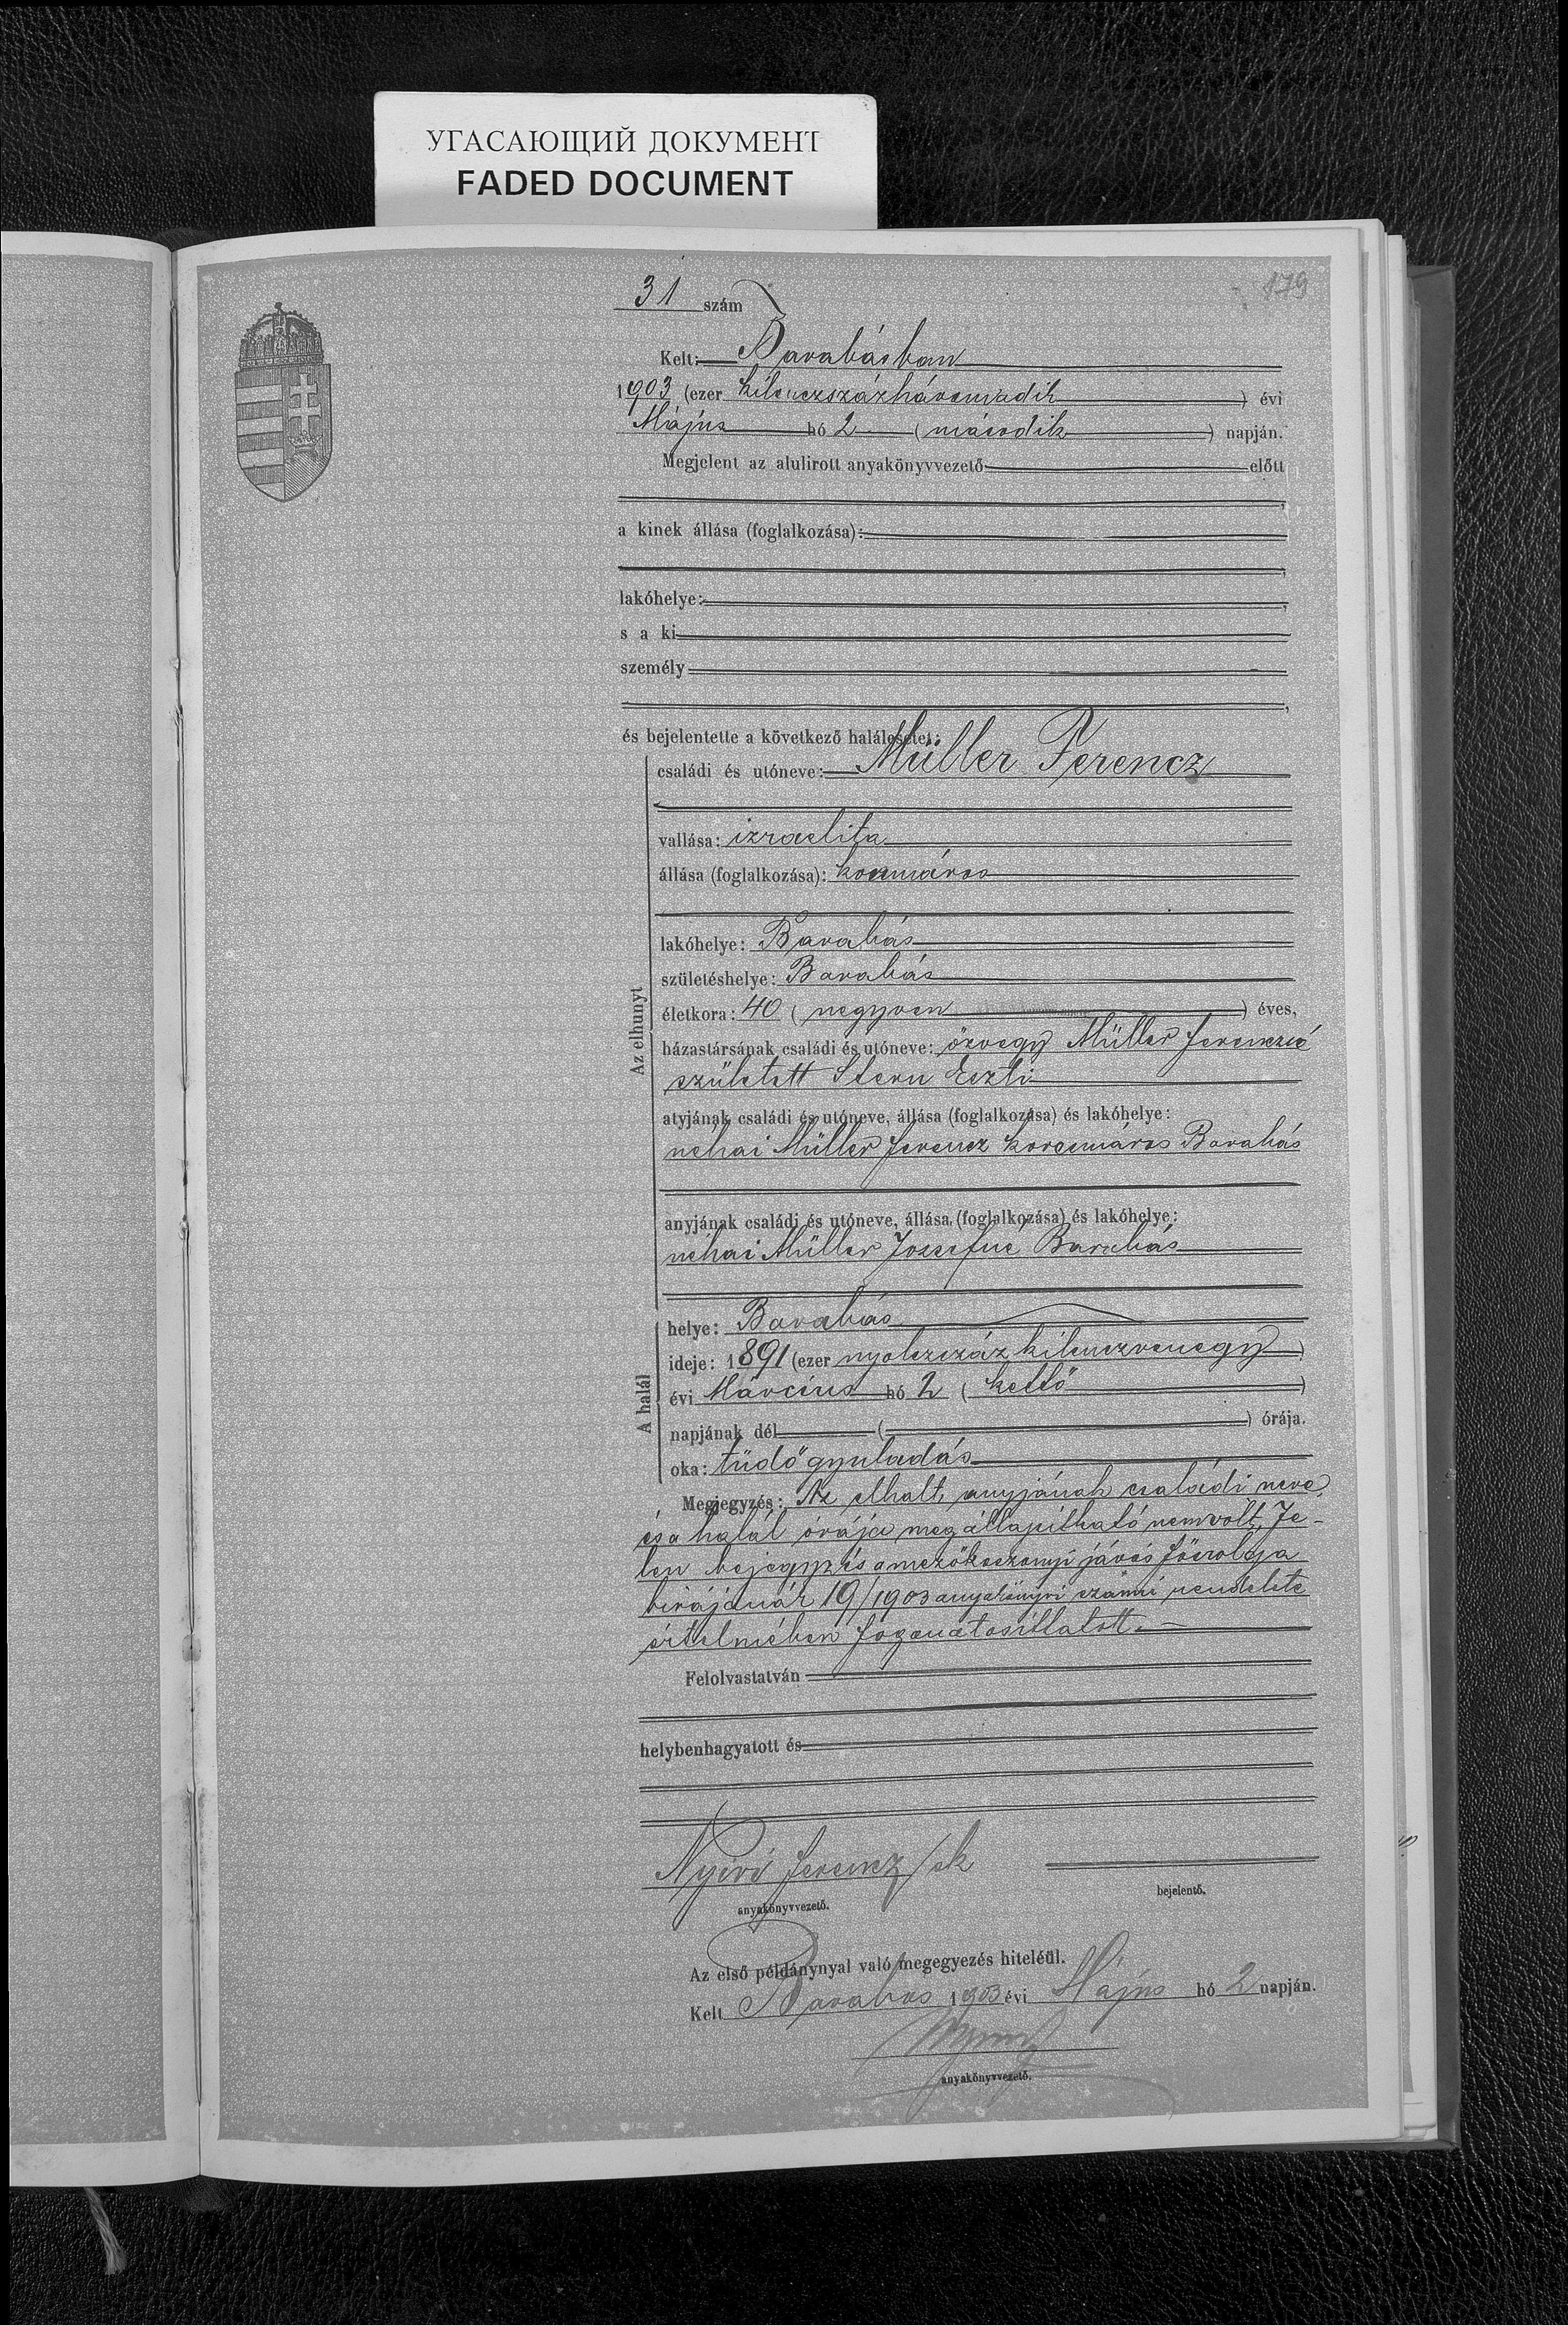 УГАСАЮЩИЙ ДОКУМЕНТ
FADED DOCUMENT
179
31 szám
Kelt: Barabásban
1903 (ezer kilenczszázháromadik) évi
Május hó 2 (második) napján.
Megjelent az alulirott anyakönyvvezető előtt
a kinek állása (foglalkozása):
lakóhelye:
s a ki
személy
és bejelentette a következő halálesetet:
Az elhunyt
családi és utóneve: Müller Ferencz
vallása: izraelita
állása (foglalkozása): korcmáros
lakóhelye: Barabás
születéshelye: Barabás
életkora: 40 (negyven) éves,
házastársának családi és utóneve: özvegy Müller Ferenczné
született Stern Eszti
atyjának családi és utóneve, állása (foglalkozása) és lakóhelye:
néhai Müller Ferencz korcmáros Barabás
anyjának családi és utóneve, állása (foglalkozása) és lakóhelye:
néhai Müller Jozsefné Barabás
A halál
helye: Barabás
ideje: 1891 (ezer nyolczszáz kilenczvenegy)
évi Március hó 2 (kettő)
napjának dél ( ) órája.
oka: tüdőgyuladás
Megjegyzés: Az elhalt, anyjának családi neve,
és a halál órája megállapitható nem volt. Je-
len bejegyzés a mezőkaszonyi járás főszolga
birájának 19/1903 anyakönyvi számú rendelete
értelmében foganatosittatott.
Felolvastatván
helybenhagyatott és
Nyirő Ferencz /sk
anyakönyvvezető.
bejelentő.
Az első példánynyal való megegyezés hiteléül.
Kelt Barabás 1903 évi Május hó 2 napján.
anyakönyvvezető.